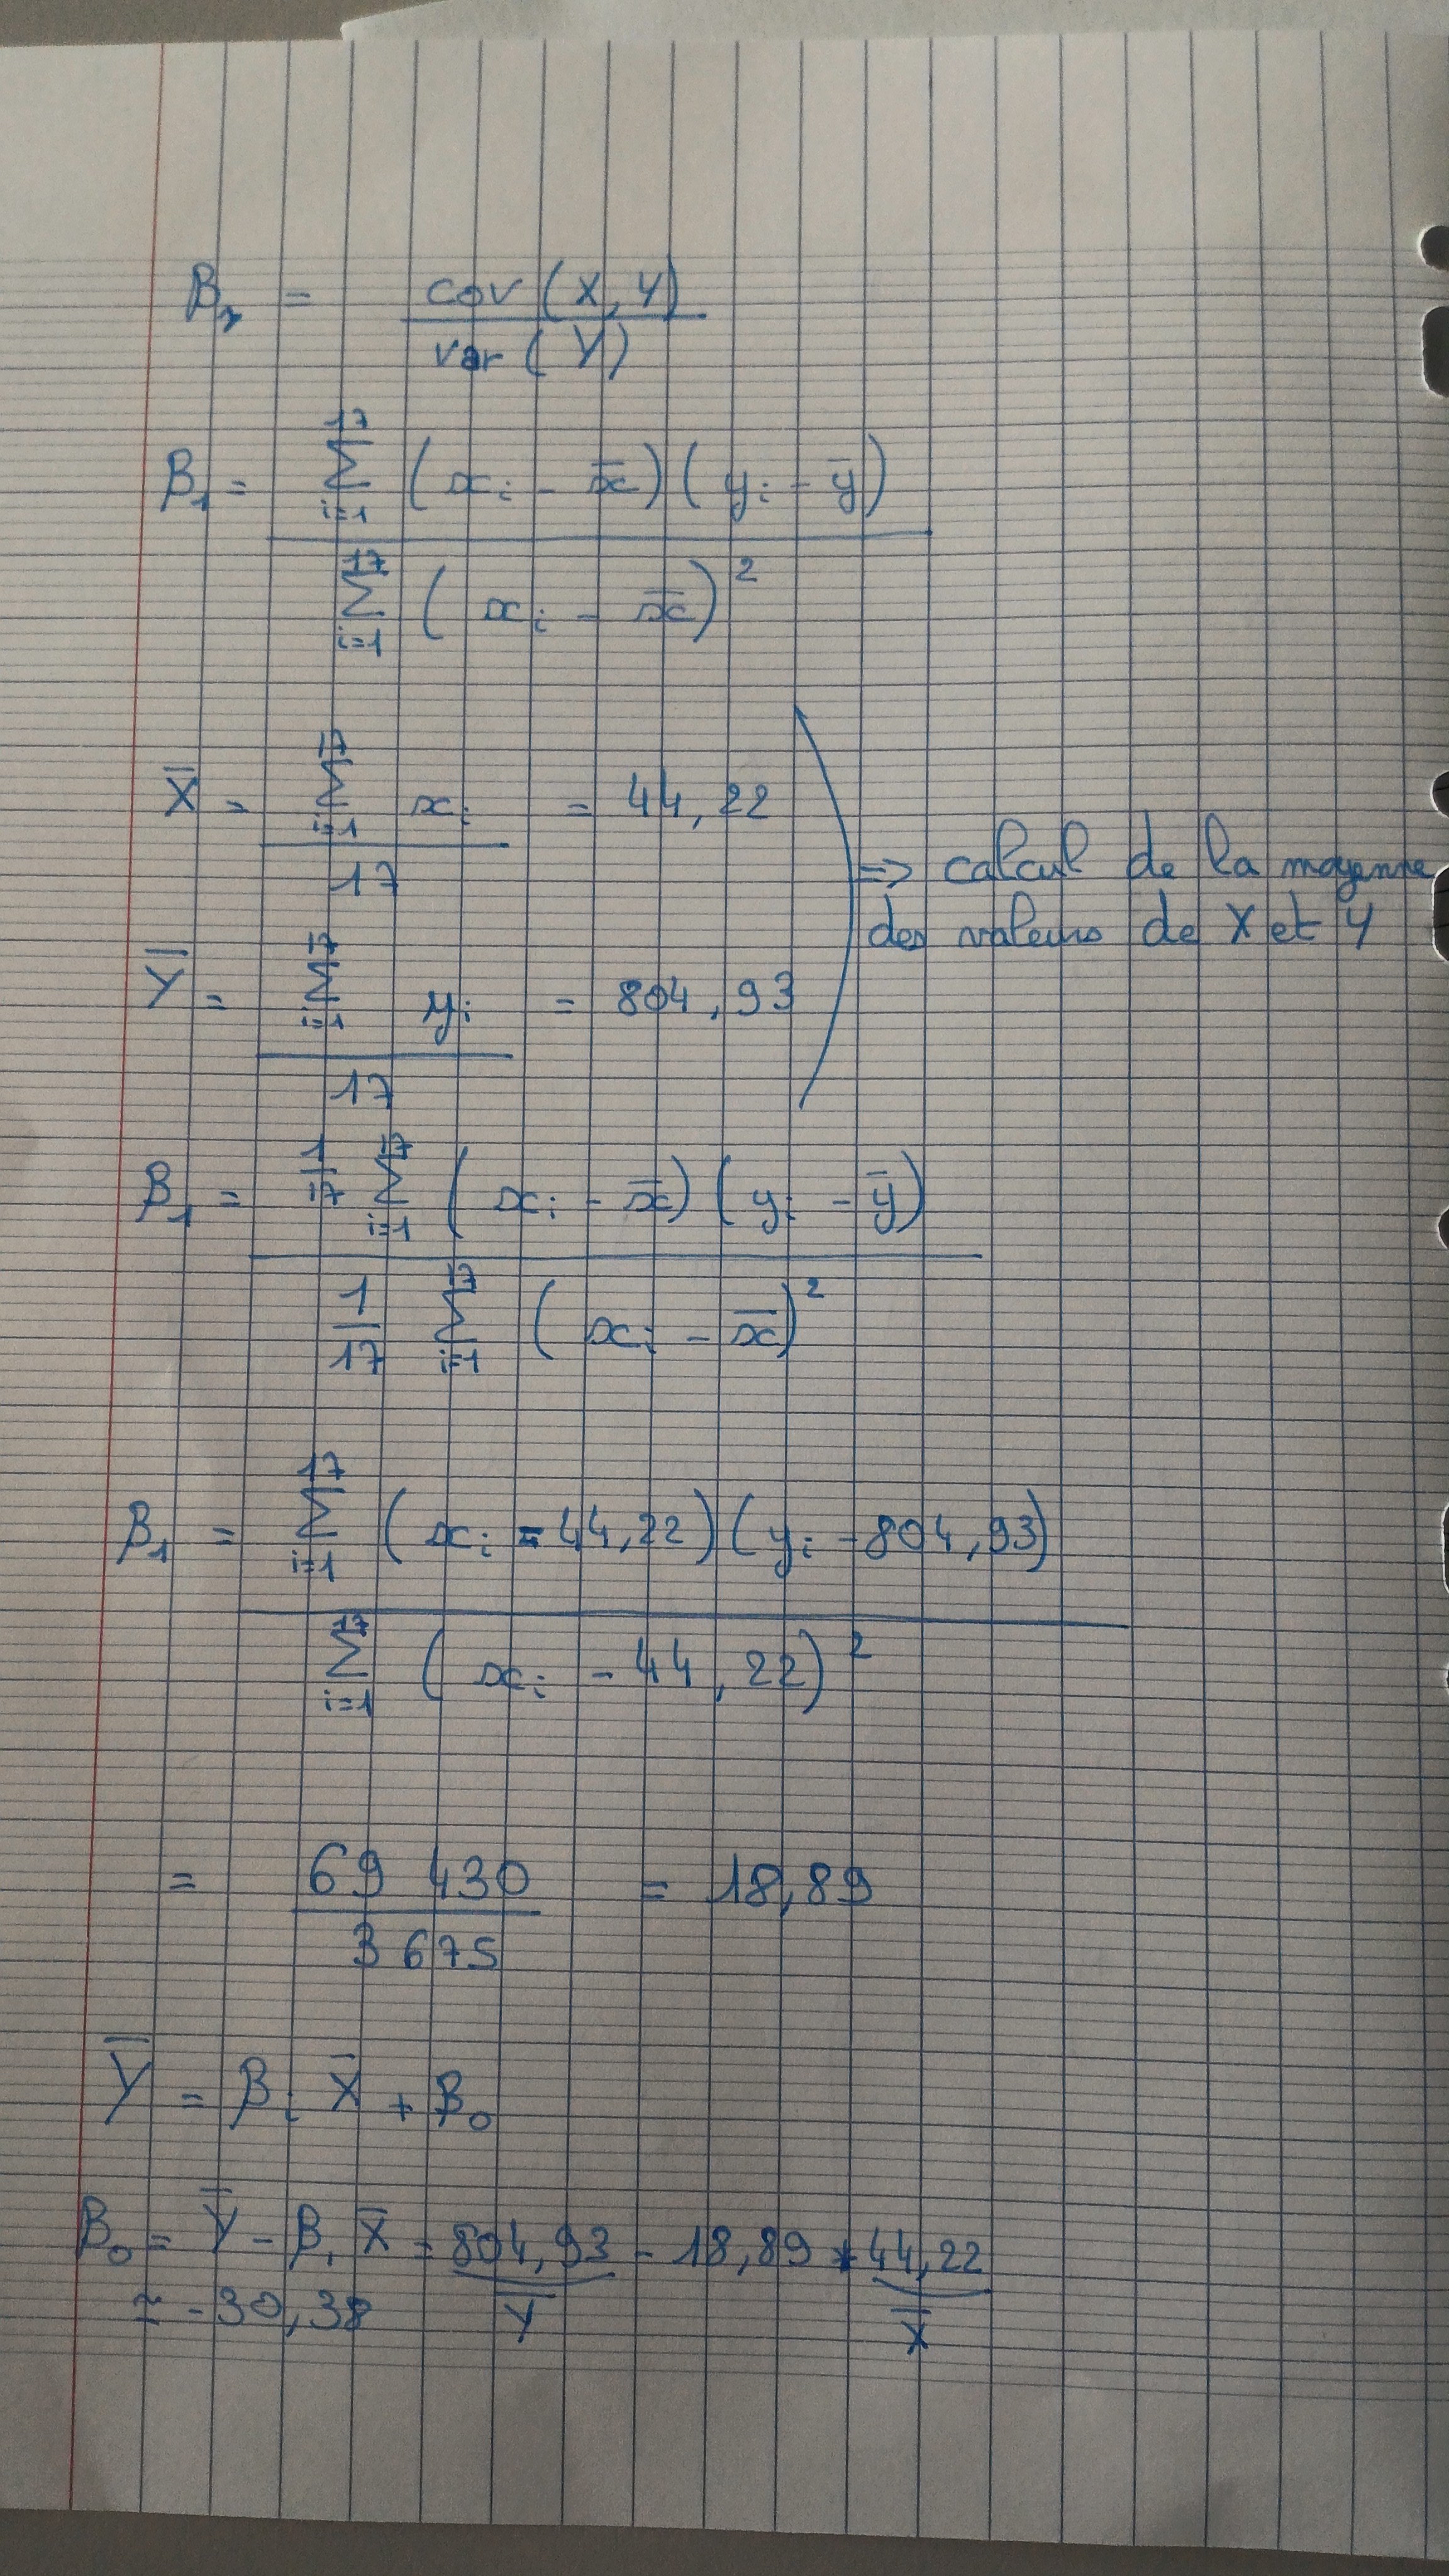 β₁ = cov(X, Y) / var(Y)
β₁ = ∑_{i=1}^{17} (xᵢ - x̄)(yᵢ - ȳ) / ∑_{i=1}^{17} (xᵢ - x̄)²
X̄ = ∑_{i=1}^{17} xᵢ / 17 = 44,22
=> calcul de la moyenne
des valeurs de X et Y
Ȳ = ∑_{i=1}^{17} yᵢ / 17 = 804,93
β₁ = 1/17 ∑_{i=1}^{17} (xᵢ - x̄)(yᵢ - ȳ) / 1/17 ∑_{i=1}^{17} (xᵢ - x̄)²
β₁ = ∑_{i=1}^{17} (xᵢ - 44,22)(yᵢ - 804,93) / ∑_{i=1}^{17} (xᵢ - 44,22)²
= 69 430 / 3 675 = 18,89
Ȳ = β₁ X̄ + β₀
β₀ = Ȳ - β₁ X̄ = 804,93 - 18,89 * 44,22
Ȳ X̄
≈ -30,38